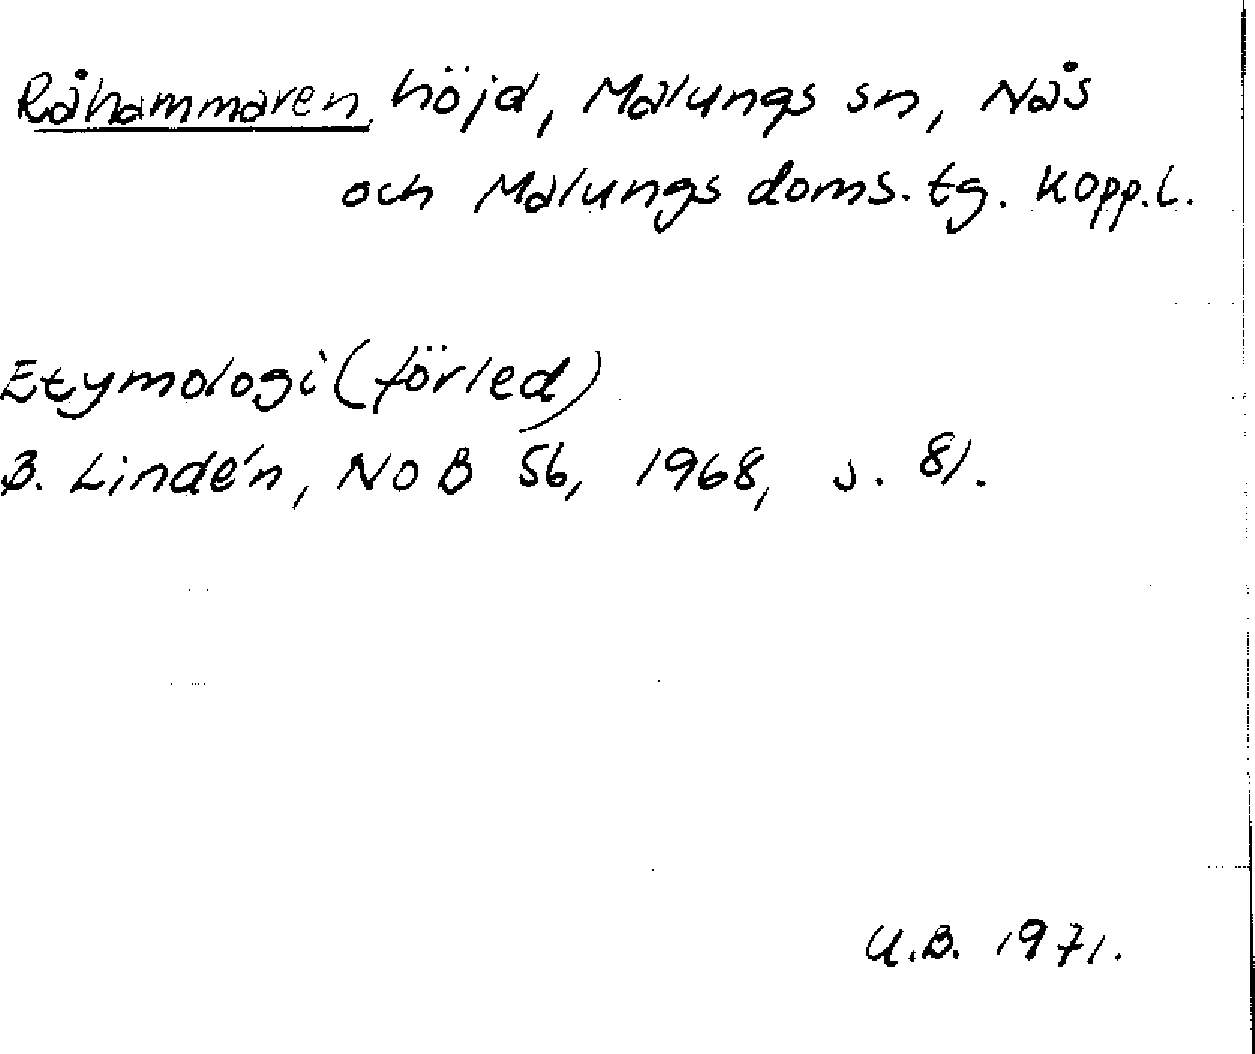 Råhammaren, höjd, Malungs sn, Nås
och Malungs doms. tg. Kopp.l.
Etymologi (förled)
B. Lindén, NoB 56, 1968, s. 81.
U.B. 1971.